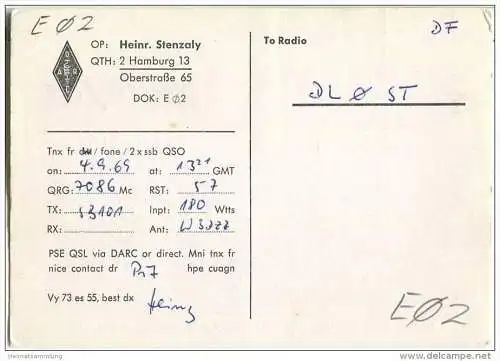 EØ2
OP: Heinr. Stenzaly
QTH: 2 Hamburg 13
Oberstraße 65
DOK: E Ø2
Tnx fr / fone / 2 x ssb QSO
on: 4.9.69 at: 13 21 GMT
QRG: 7086 Mc RST: 57
TX: Inpt: 180 Wtts
RX: Ant: W3zzz
PSE QSL via DARC or direct. Mni tnx fr
nice contact dr hpe cuagn
Vy 73 es 55, best dx Heinz
To Radio
DF
DL Ø ST
EØ2